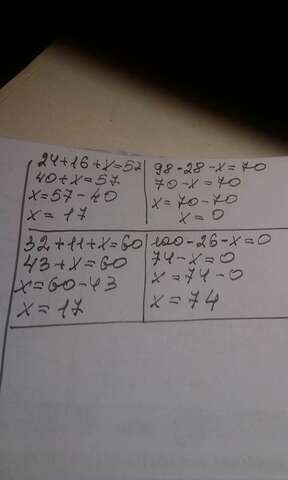 24+16+x=57
40+x=57
x=57-40
x=17
98-28-x=70
70-x=70
x=70-70
x=0
32+11+x=60
43+x=60
x=60-43
x=17
100-26-x=0
74-x=0
x=74-0
x=74